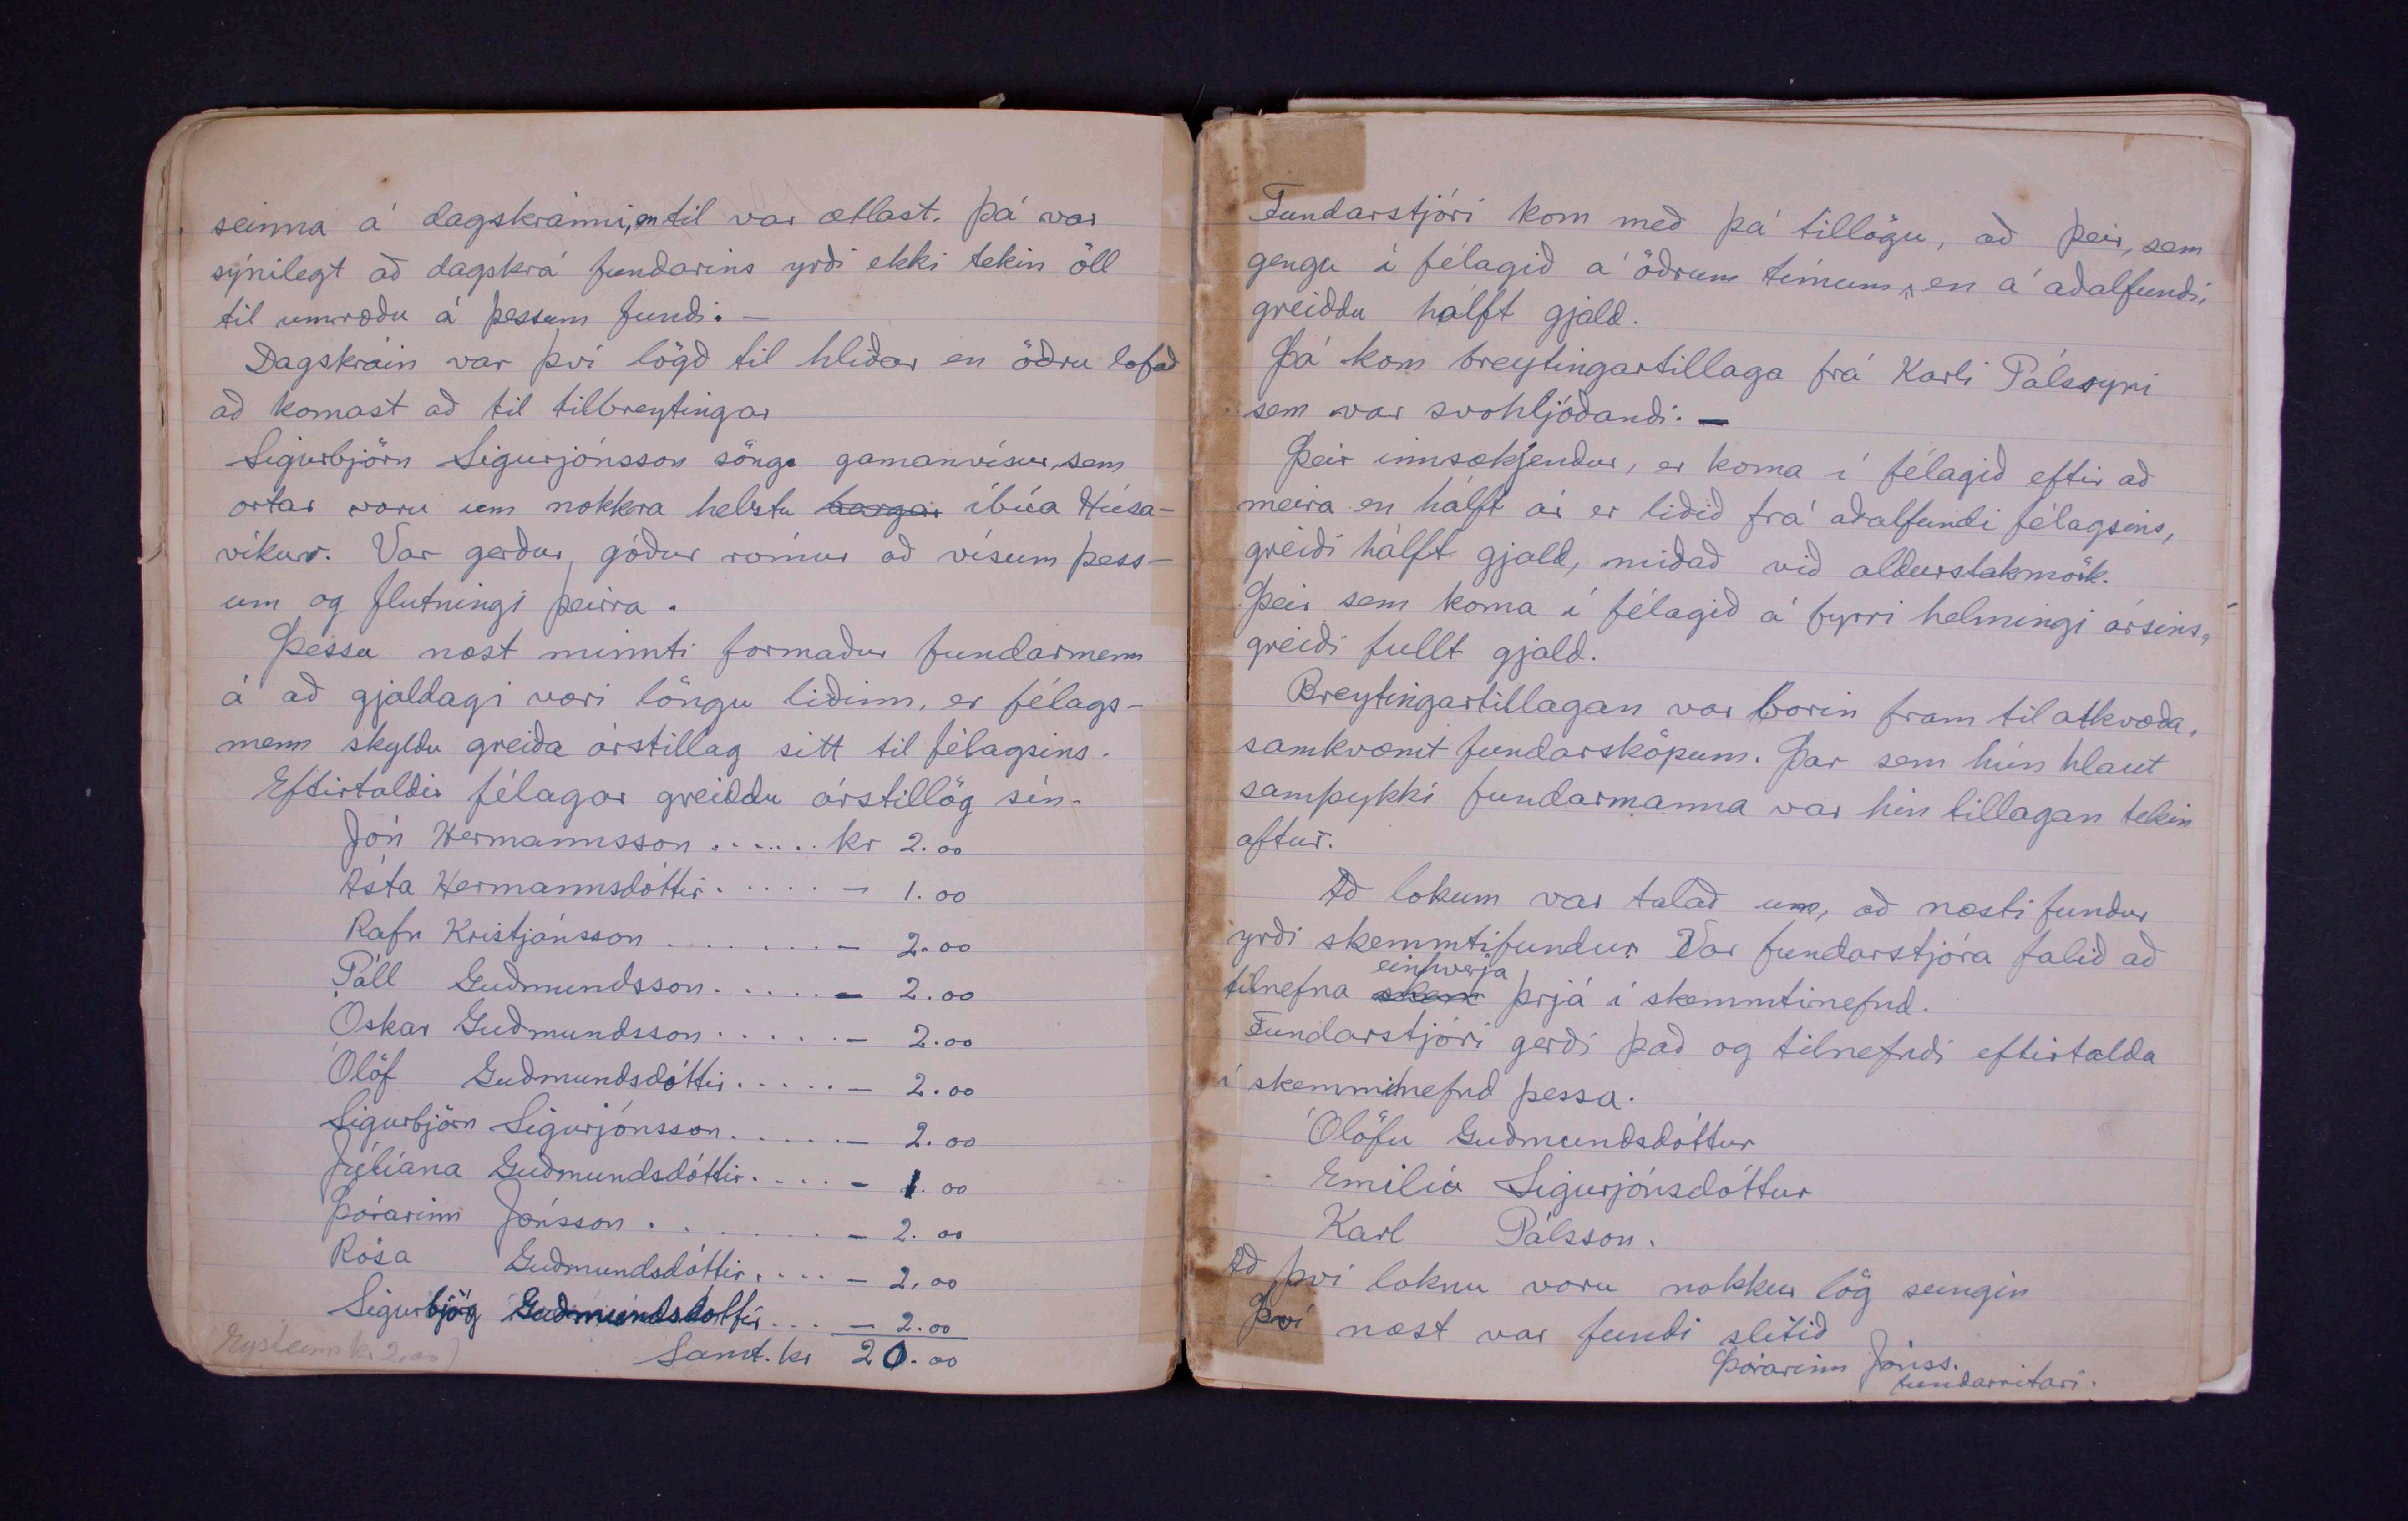 seinna á dagskránni, en til var ætlast. Þá var
sýnilegt að dagskrá fundarins yrði ekki tekin öll
til umræðu á þessum fundi. —
Dagskráin var því lögð til hliðar en öðru lofað
að komast að til tilbreytingar
Sigurbjörn Sigurjónsson söng gamanvísur, sem
ortar voru um nokkra helstu borgar íbúa Húsa-
víkur. Var gerður góður rómur að vísum þess-
um og flutningi þeirra.
Þessu næst minnti formaður fundarmenn
á að gjaldagi væri löngu liðinn, er félags-
menn skyldu greiða árstillag sitt til félagsins.
Eftirtaldir félagar greiddu árstillög sín.
Jón Hermannsson ...... kr 2.00
Ásta Hermannsdóttir ..... — 1.00
Rafn Kristjánsson ....... — 2.00
Páll Guðmundsson ..... — 2.00
Óskar Guðmundsson ..... — 2.00
Ólöf Guðmundsdóttir ..... — 2.00
Sigurbjörn Sigurjónsson ..... — 2.00
Júlíana Guðmundsdóttir .... — 1.00
Þórarinn Jónsson ....... — 2.00
Rósa Guðmundsdóttir .... — 2.00
Sigurbjög Guðmundsdóttir ... — 2.00
Samt. kr 20.00
Eysteinn kr 2.00)
Fundarstjóri kom með þá tillögu, að þeir, sem
gengu í félagið á öðrum tímum, en á aðalfundi,
greiddu hálft gjald.
Þá kom breytingartillaga frá Karli Pálssyni
sem var svohljóðandi. —
Þeir innsækjendur, er koma í félagið eftir að
meira en hálft ár er liðið frá aðalfundi félagsins,
greiði hálft gjald, miðað við aldurstakmörk.
Þeir sem koma í félagið á fyrri helmingi ársins,
greiði fullt gjald.
Breytingartillagan var borin fram til atkvæða,
samkvæmt fundarsköpum. Þar sem hún hlaut
samþykki fundarmanna var hin tillagan tekin
aftur.
Að lokum var talað um, að næsti fundur
yrði skemmtifundur. Var fundarstjóra falið að
einhverja
tilnefna skem þrjá í skemmtinefnd.
Fundarstjóri gerði það og tilnefndi eftirtalda
í skemmtinefnd þessa.
Ólöfu Guðmundsdóttur
Emilíu Sigurjónsdóttur
Karl Pálsson.
Að því loknu voru nokkur lög sungin
Því næst var fundi slitið
Þórarinn Jónss.
fundarritari.